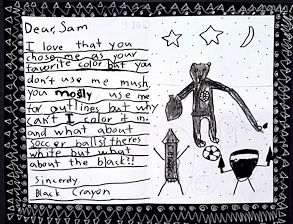 Dear, Sam
I love that you
chose me as your
favorite color but you
don't use me mush,
you mostly use me
for outlines but why
can't I color it in.
and what about
soccer balls! theres
white but what
about the black!!
Sincerdy
Black Crayon